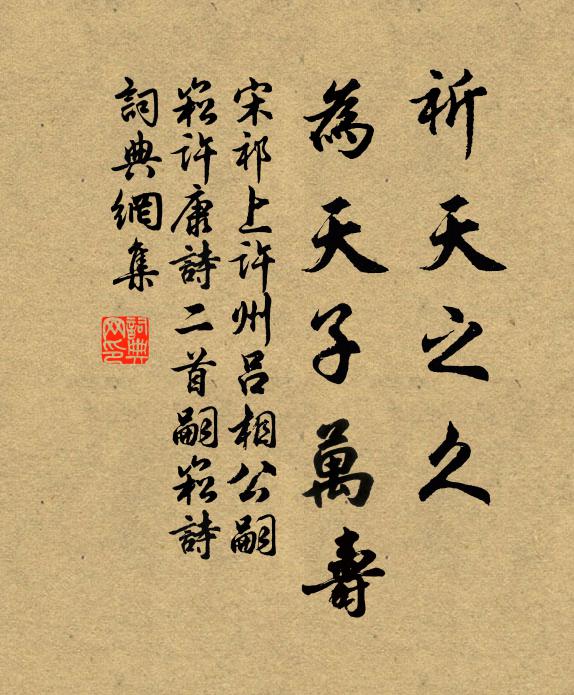 祈天之久
為天子萬壽
宋祁上許州呂相公嗣
崧許康詩二首嗣崧詩
詞典網集
詞典网印